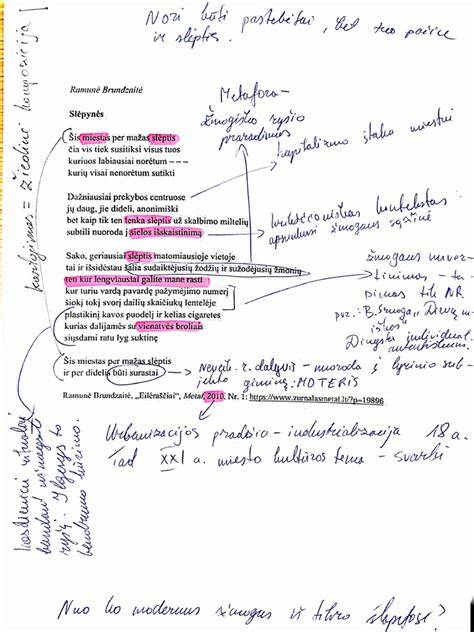 Nori būti pastebėtai, bet tuo pačiu
ir slėptis.
kartojimas = žiedinė kompozicija
Ramunė Brundzaitė
Slėpynės
Šis miestas per mažas slėptis
čia vis tiek susitiksi visus tuos
kuriuos labiausiai norėtum – – –
kurių visai nenorėtum sutikti
Metafora –
žmogiško ryšio
praradimas
kapitalizmo įtaka miestui
Dažniausiai prekybos centruose
jų daug, jie dideli, anonimiški
bet kaip tik ten tenka slėptis už skalbimo miltelių
subtili nuoroda į sielos išskaistinimą
kontekstas
žmogaus sąžinė
Sako, geriausiai slėptis matomiausioje vietoje
tai ir išsidėstau šalia sudaiktėjusių žodžių ir sužodėjusių žmonių
ten kur lengviausiai galite mane rasti
kur turiu vardą pavardę pažymėjimo numerį
šiokį tokį svorį dailių skaičiukų lentelėje
plastikinį kavos puodelį ir kelias cigaretes
kurias dalijamės su vienatvės broliais
siųsdami ratu lyg suktinę
žmogaus
tik NR.
pvz.: B. Sruoga „Dievų miškas"
Dingsta
Šis miestas per mažas slėptis
ir per didelis būti surastai
r. dalyvis – nuoroda į lyrinio sub-
jekto giminę: MOTERIS
Ramunė Brundzaitė, „Eilėraščiai", Metai, 2010, Nr. 1: https://www.zurnalasmetai.lt/?p=19896
Urbanizacijos pradžia – industrializacija 18 a.
tad XXI a. miesto kultūros tema – svarbi
ryšį.
bendrumo kūrimo.
Nuo ko modernus žmogus iš tikro slapstosi?